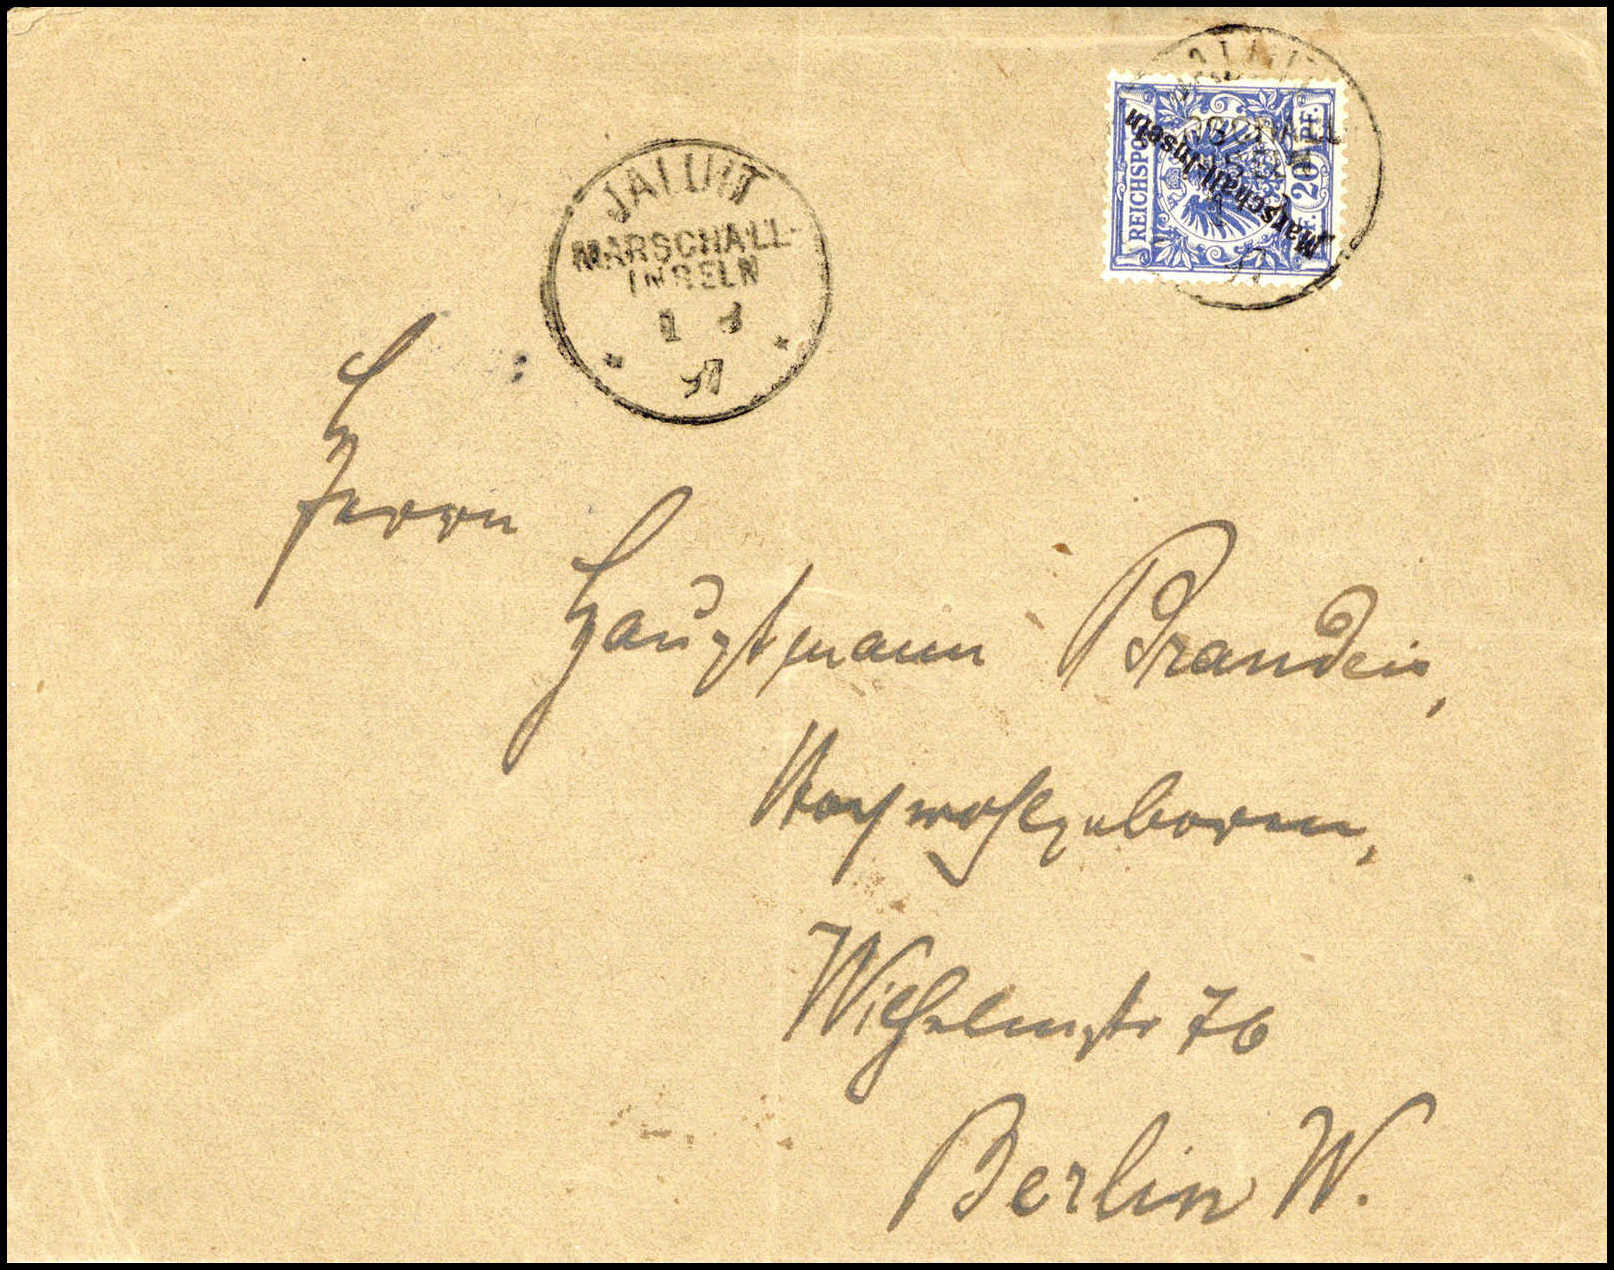 JALUIT
MARSCHALL-
INSELN
REICHSPOST
PF. 20 PF.
Marschall-Inseln
Herrn
Hauptmann Brandeis,
Hochwohlgeboren,
Wilhelmstr 76
Berlin W.